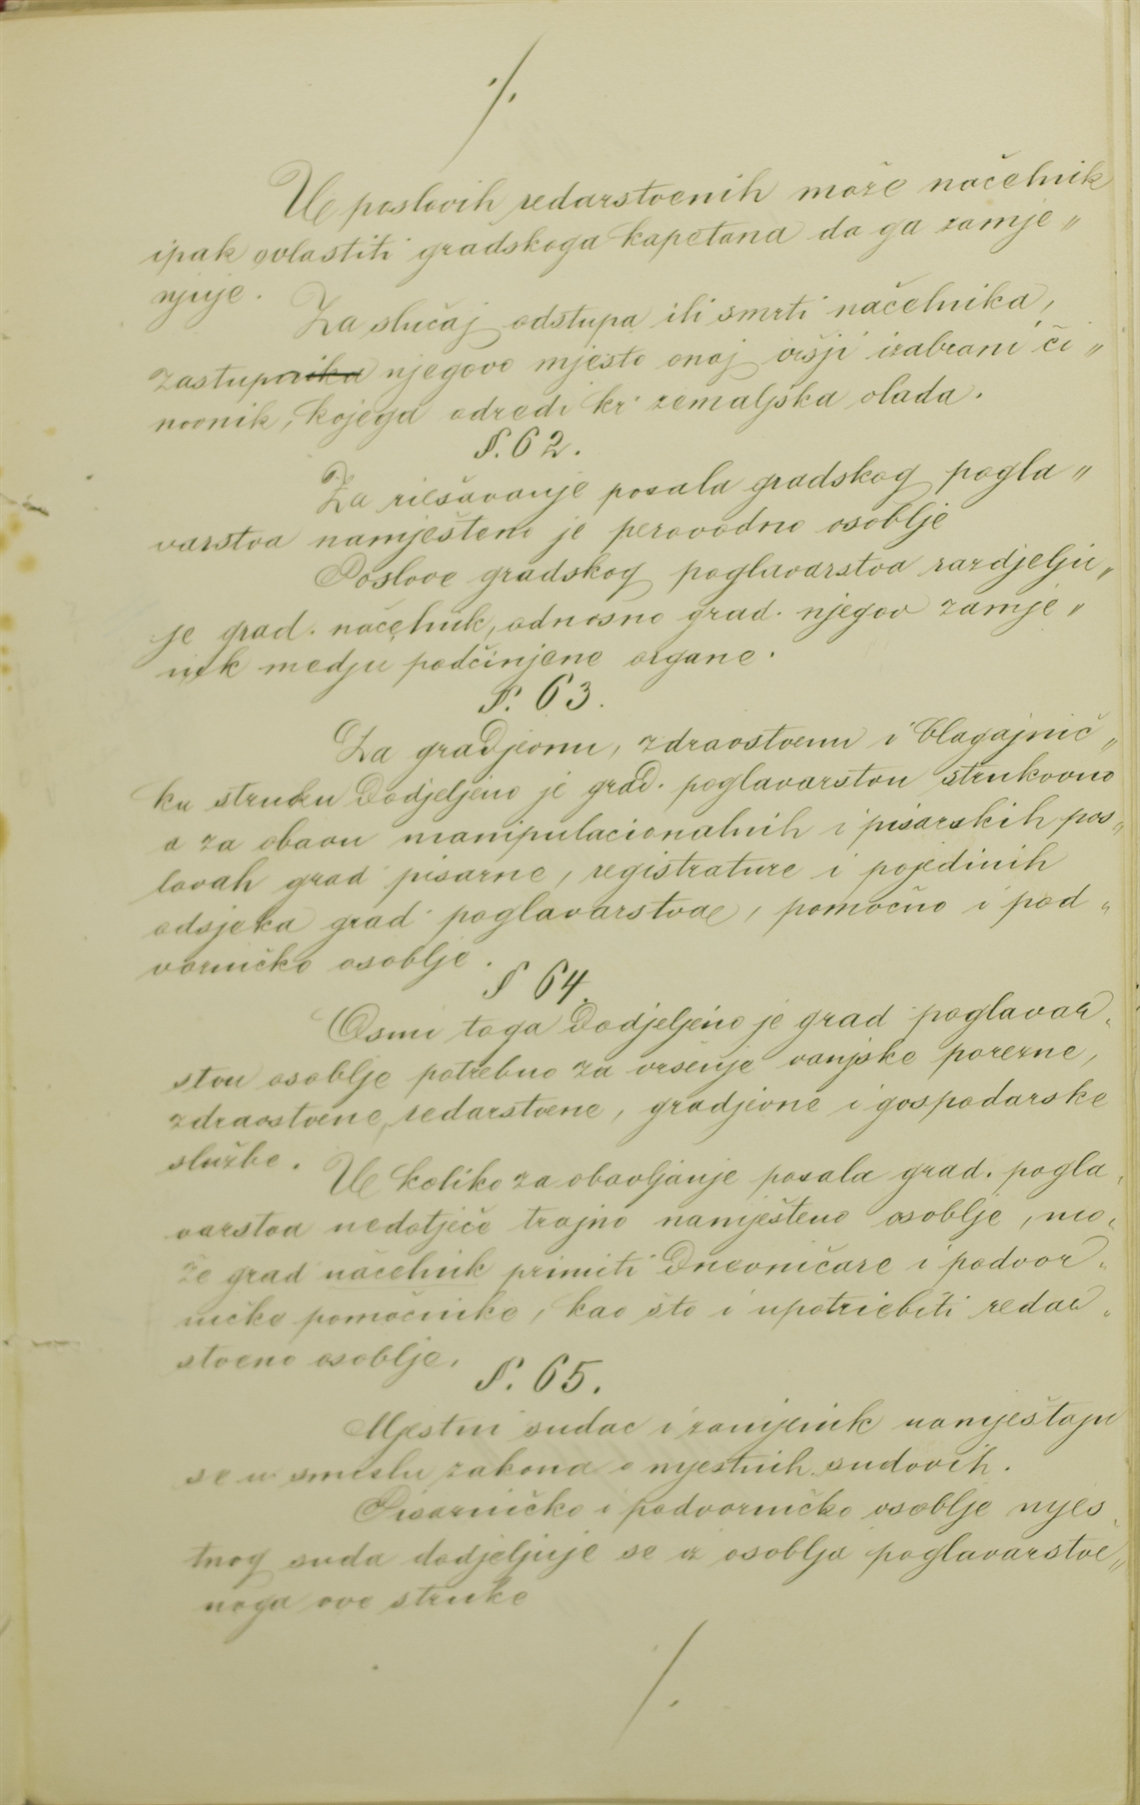 ./.
U poslovih redarstvenih može načelnik
ipak ovlastiti gradskoga kapetana da ga zamje„
njuje.
Za slučaj odstupa ili smrti načelnika,
zastupnika njegovo mjesto onaj vrši izabrani či„
novnik, kojega odredi kr. zemaljska vlada.
§. 62.
Za riešavanje posala gradskog pogla„
varstva namješteno je perovodno osoblje
Poslove gradskog poglavarstva razdjelju„
je grad. načelnik, odnosno grad. njegov zamje„
nik medju podčinjene organe.
§. 63.
Za gradjevnu, zdravstvenu i blagajnič„
ku struku dodjeljeno je grad. poglavarstvu strukovno
a za obavu manipulacionalnih i pisarskih pos„
lovah grad pisarne, registrature i pojedinih
odsjeka grad. poglavarstva, pomoćno i pod„
vorničko osoblje.
§ 64.
Osmi toga dodjeljeno je grad poglavar„
stvu osoblje potrebno za vršenje vanjske porezne,
zdravstvene, redarstvene, gradjevne i gospodarske
službe.
U koliko za obavljanje posala grad. pogla„
varstva nedotječe trajno namješteno osoblje, mo„
že grad načelnik primiti dnevničare i podvor„
ničke pomoćnike, kao što i upotriebiti redar„
stveno osoblje.
§. 65.
Mjestni sudac i zamjenik namještaju
se u smislu zakona o mjestnih sudovih.
Pisarničko i podvorničko osoblje mjes„
tnog suda dodjeljuje se iz osoblja poglavarstve„
noga ove struke
/.